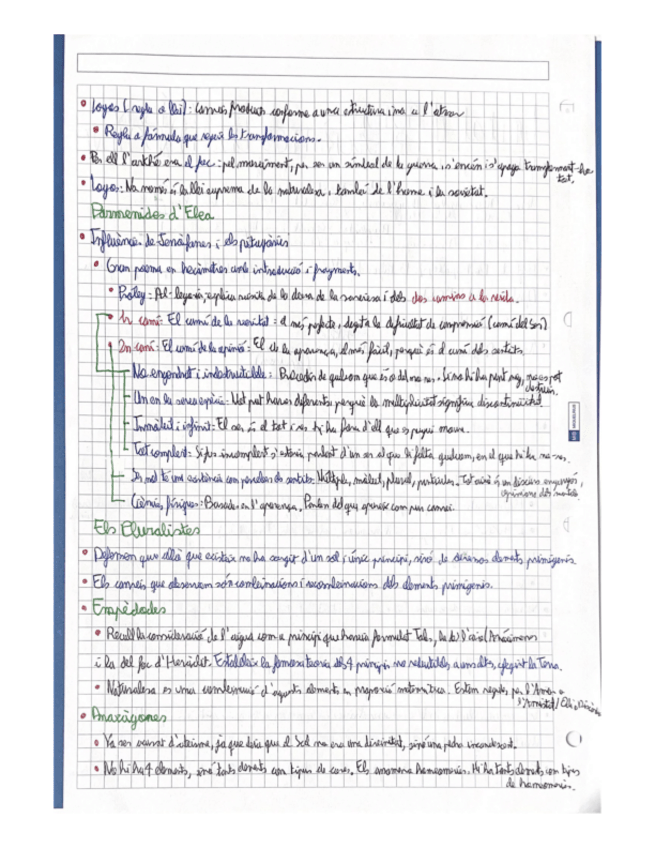 • Logos (regla o llei): Canvis produïts conforme a una estructura ima a l'atzar
• Regla o fórmula que regeix les transformacions.
• Per ell l'arkhé era el foc: pel moviment, per ser un símbol de la guerra, s'encén i s'apaga transformant-ho
tot.
• Logos: No només és la llei suprema de la naturalesa, també de l'home i la societat.
Parmenides d'Elea
• Influència de Xenòfanes i els pitagòrics
• Gran poema en hexàmetres amb introducció i fragments.
• Pròleg: Al·legoria, explica de la deessa de la saviesa i dels dos camins a la
• 1r camí: El camí de la veritat: el més perfecte, degut a la dificultat de comprensió (camí del Ser)
• 2n camí: El camí de la opinió: El de la aparença, el més fàcil, perquè és el camí dels sentits.
No engendrat i indestructible: Procedir de quelcom que és o del no res. Si no hi ha part no es pot
destruir.
Un en la seva espècie: Not pot haver diferents perquè la multiplicitat significa discontinuïtat.
Immòbil i infinit: El ser és el tot i res hi ha fora d'ell que es pugui moure.
Tot complet: Si fos incomplet s'estaria parlant d'un ser al que li falta quelcom, en el que hi ha no-res.
existència com paraules de sentits: Múltiple, mòbil, plural, particular. Tot això és un discurs enganyós,
opinions dels mortals
Ciències físiques: Basades en l'aparença. Parlen del que apareix com pur canvi.
Els Pluralistes
• Defensen que allò que existeix no ha sorgit d'un sol i únic principi, sinó de diversos elements primigenis.
• Els canvis que observem són combinacions i recombinacions dels elements primigenis.
• Empèdocles
• Recull la consideració de l'aigua com a principi que havia formulat Tales, la de l'aire (Anaxímenes
i la del foc d'Heràclit. Estableix la famosa teoria dels 4 principis no reductibles a uns altres, afegint la Terra.
• Naturalesa és una combinació d'aquests elements en proporció matemàtica. Estan regits per l'Amor o
l'Amistat/Odi o Discòrdia
• Anaxàgores
• Va ser acusat d'ateisme, ja que deia que el Sol no era una divinitat, sinó una pedra incandescent.
• No hi ha 4 elements, sinó tants elements com tipus de coses. Els anomena homeomeries. Hi ha tants elements com tipus
de homeomeries.